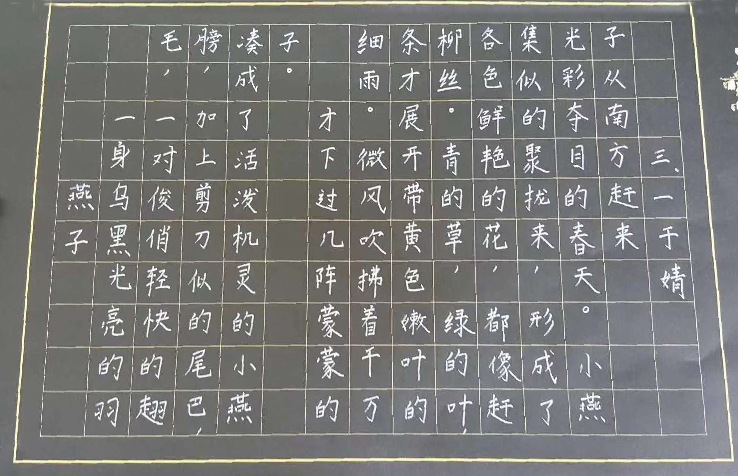 燕子
一身乌黑光亮的羽
毛，一对俊俏轻快的翅
膀，加上剪刀似的尾巴，
凑成了活泼机灵的小燕
子。
才下过几阵蒙蒙的
细雨。微风吹拂着千万
条才展开带黄色嫩叶的
柳丝。青的草，绿的叶，
各色鲜艳的花，都像赶
集似的聚拢来，形成了
光彩夺目的春天。小燕
子从南方赶来
三、一于婧